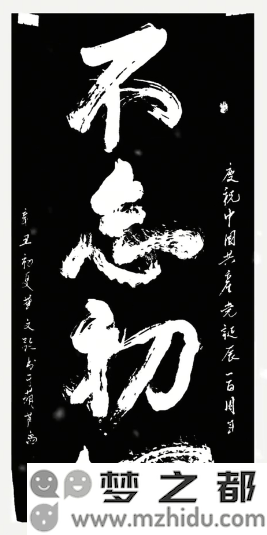 庆祝中国共产党诞辰一百周年
不忘初
辛丑初夏
梦之都
www.mzhidu.com